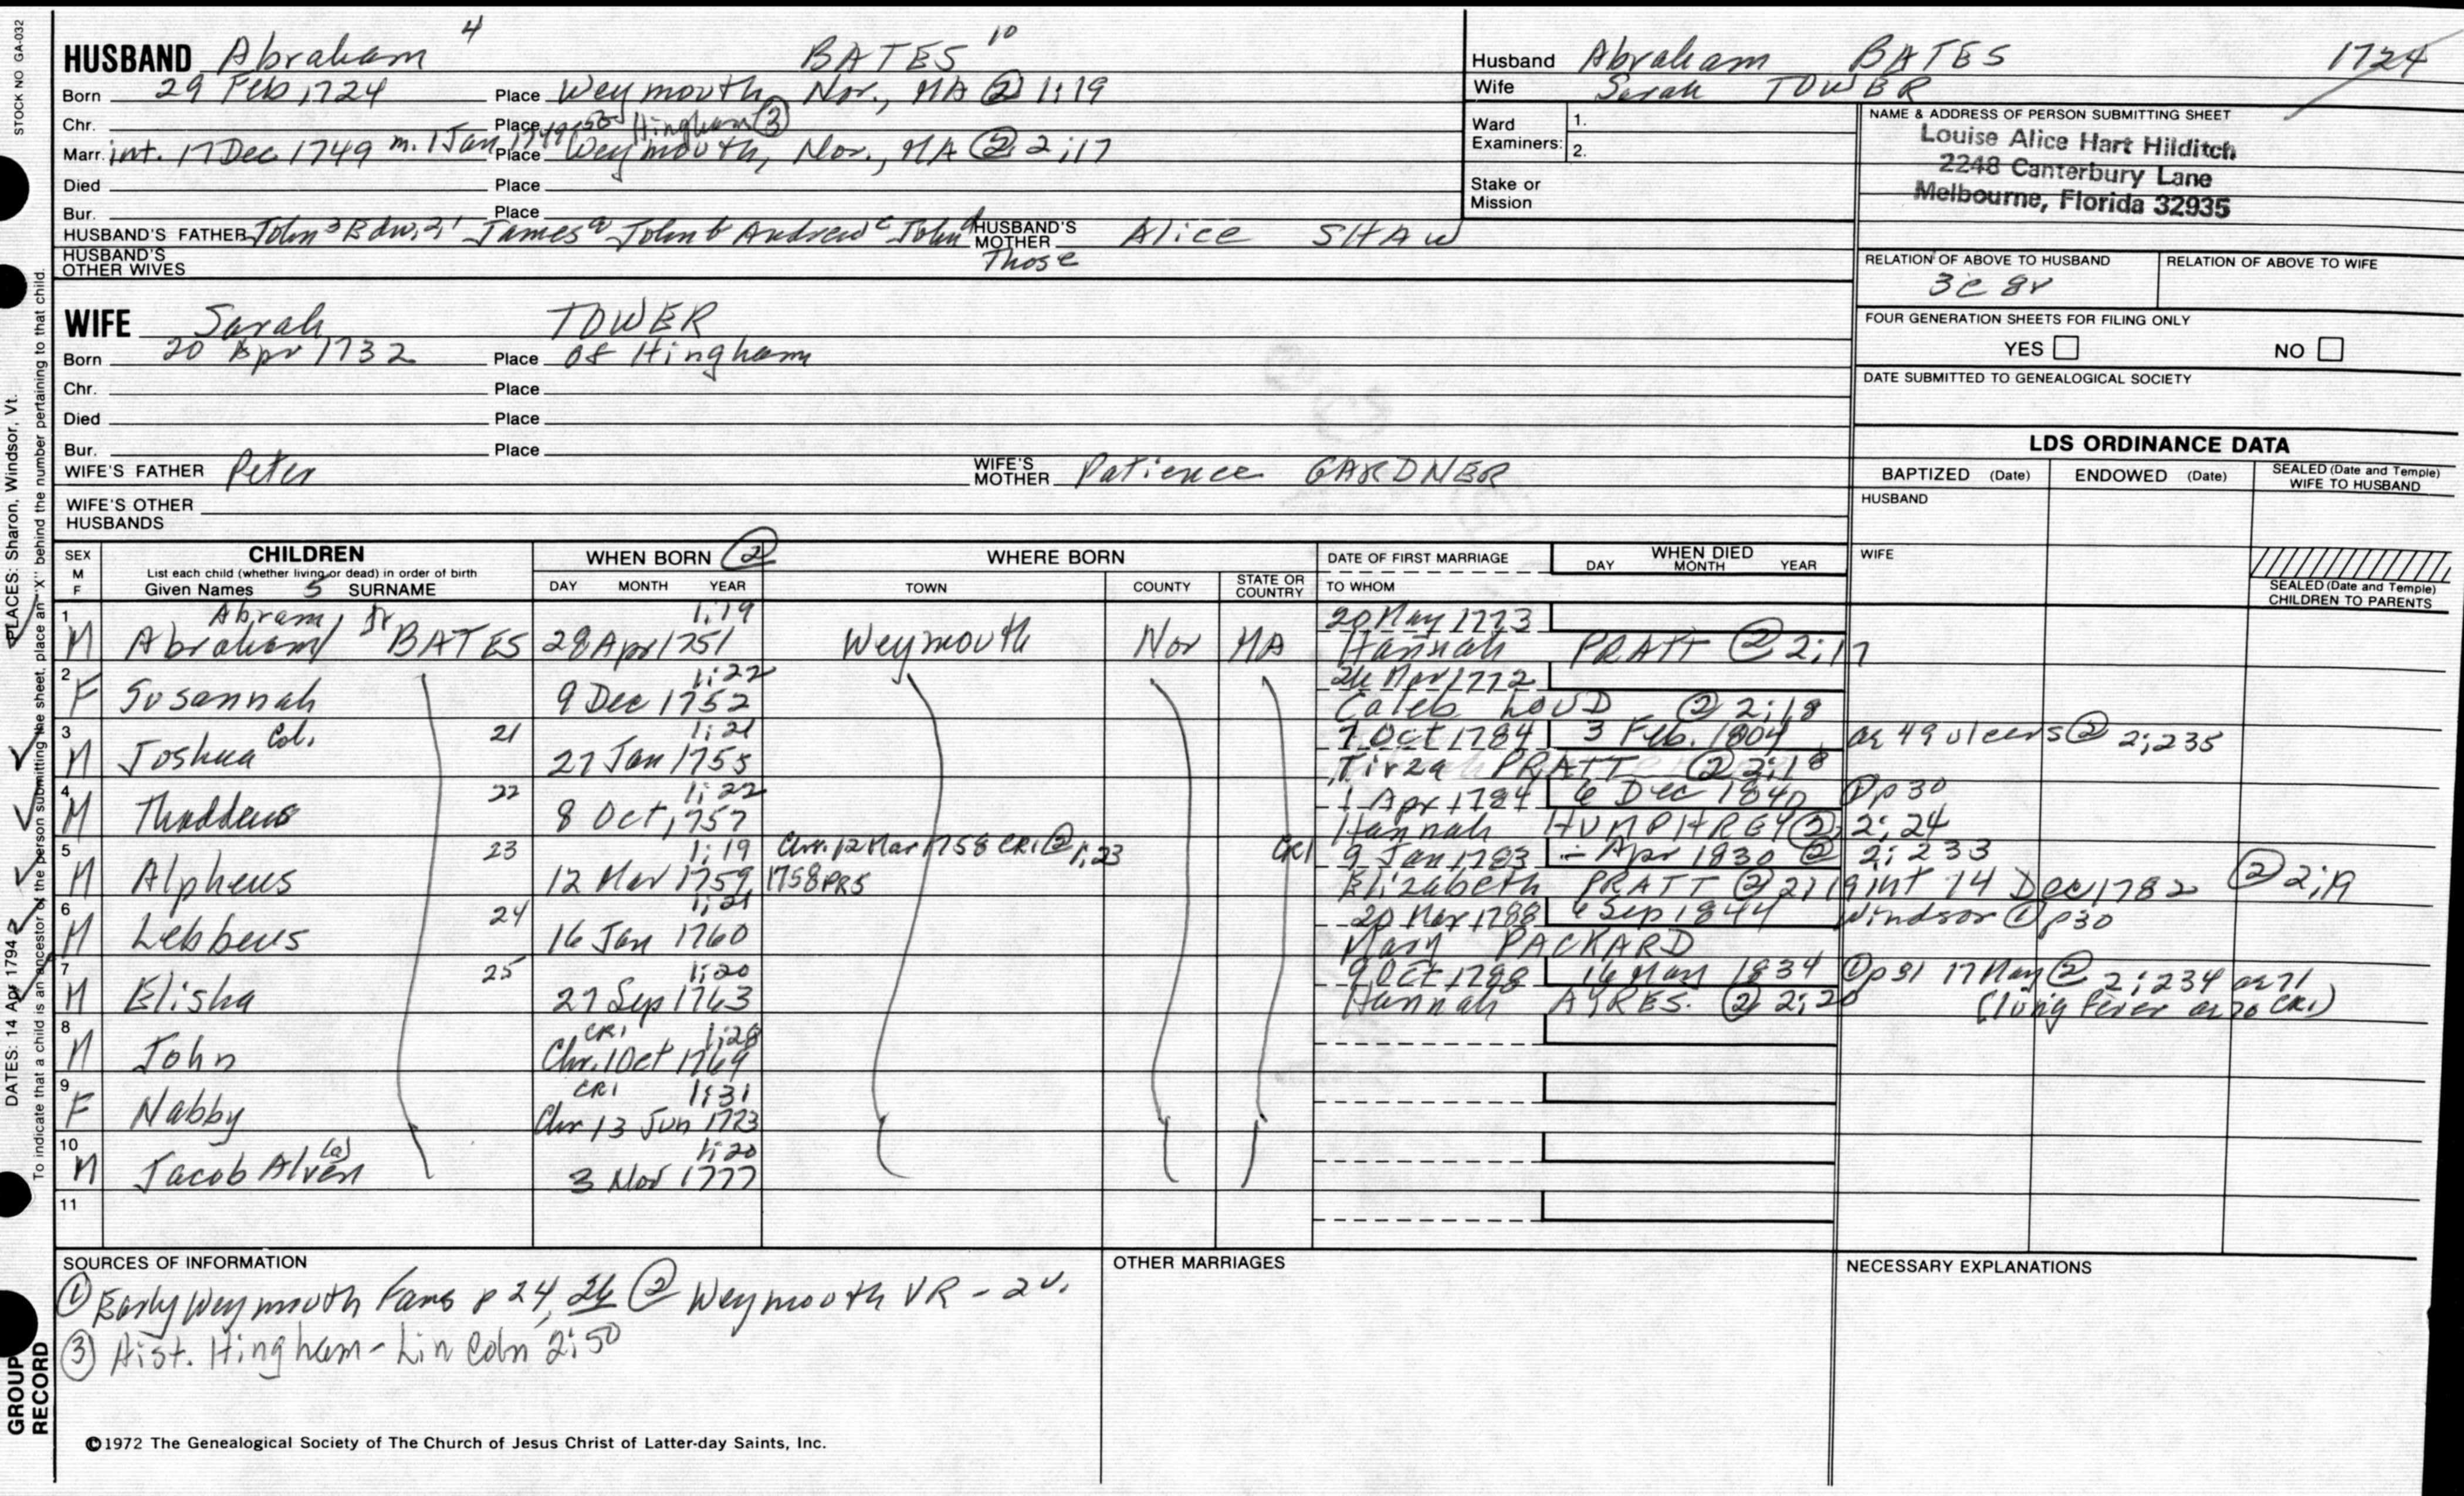 STOCK NO GA-032
HUSBAND Abraham 4 BATES 10
Born 29 Feb 1724 Place Weymouth, Nor., MA ② 1:19
Chr. Place Hingham ③
Marr. int. 17 Dec 1749 m. 1 Jan 1749/50 Place Weymouth, Nor., MA ② 2:17
Died Place
Bur. Place
HUSBAND'S FATHER John 3 Edw. 2, 1 James a John b Andrew c John d HUSBAND'S MOTHER Alice SHAW
HUSBAND'S OTHER WIVES Those
Husband Abraham BATES 1724
Wife Sarah TOWER
Ward Examiners: 1.
2.
Stake or Mission
NAME & ADDRESS OF PERSON SUBMITTING SHEET
Louise Alice Hart Hilditch
2248 Canterbury Lane
Melbourne, Florida 32935
RELATION OF ABOVE TO HUSBAND RELATION OF ABOVE TO WIFE
3c 8r
FOUR GENERATION SHEETS FOR FILING ONLY
YES NO
DATE SUBMITTED TO GENEALOGICAL SOCIETY
WIFE Sarah TOWER
Born 20 Apr 1732 Place of Hingham
Chr. Place
Died Place
Bur. Place
WIFE'S FATHER Peter WIFE'S MOTHER Patience GARDNER
WIFE'S OTHER HUSBANDS
LDS ORDINANCE DATA
BAPTIZED (Date) ENDOWED (Date) SEALED (Date and Temple) WIFE TO HUSBAND
HUSBAND
WIFE
SEALED (Date and Temple) CHILDREN TO PARENTS
SEX M F CHILDREN WHEN BORN ② WHERE BORN DATE OF FIRST MARRIAGE WHEN DIED
List each child (whether living or dead) in order of birth DAY MONTH YEAR TOWN COUNTY STATE OR COUNTRY TO WHOM DAY MONTH YEAR
Given Names 5 SURNAME
1 Abram, Jr 1:19 20 May 1773
M Abraham BATES 28 Apr 1751 Weymouth Nor MA Hannah PRATT ② 2:17
2 1:22 26 Mar 1772
F Susannah 9 Dec 1752 Caleb LOUD ② 2:18
3 Col. 21 1:21 7 Oct 1784 3 Feb. 1804 ae 49 ulcers ② 2:235
M Joshua 27 Jan 1755 Tirza PRATT ② 2:18
4 22 1:22 1 Apr 1784 6 Dec 1840 ① p 30
M Thaddeus 8 Oct 1757 Hannah HUMPHREY ② 2:24
5 23 1:19 Chr. 12 Mar 1758 CR1 ② 1:23 CR1 9 Jan 1783 - Apr 1830 ② 2:233
M Alpheus 12 Mar 1759, 1758 PR5 Elizabeth PRATT ② 2:19 int 14 Dec 1782 ② 2:19
6 24 1:21 20 Mar 1788 6 Sep 1844 Windsor ① p30
M Lebbeus 16 Jan 1760 Mary PACKARD
7 25 1:20 9 Oct 1788 16 May 1834 ① p 31 17 May ② 2:234 ae 71
M Elisha 27 Sep 1763 Hannah AYRES. ② 2:20 (lung fever ae 70 CR1)
8 CR1 1:28
M John Chr. 1 Oct 1769
9 CR1 1:31
F Nabby Chr 13 Jun 1773
10 (a) 1:20
M Jacob Alven 3 Nov 1777
11
SOURCES OF INFORMATION OTHER MARRIAGES NECESSARY EXPLANATIONS
① Early Weymouth Fams p 24, 26 ② Weymouth VR - 2 v.
③ Hist. Hingham - Lincoln 2:50
©1972 The Genealogical Society of The Church of Jesus Christ of Latter-day Saints, Inc.
PLACES: Sharon, Windsor, Vt.
DATES: 14 Apr 1794
To indicate that a child is an ancestor of the person submitting the sheet, place an "X" behind the number pertaining to that child.
GROUP RECORD